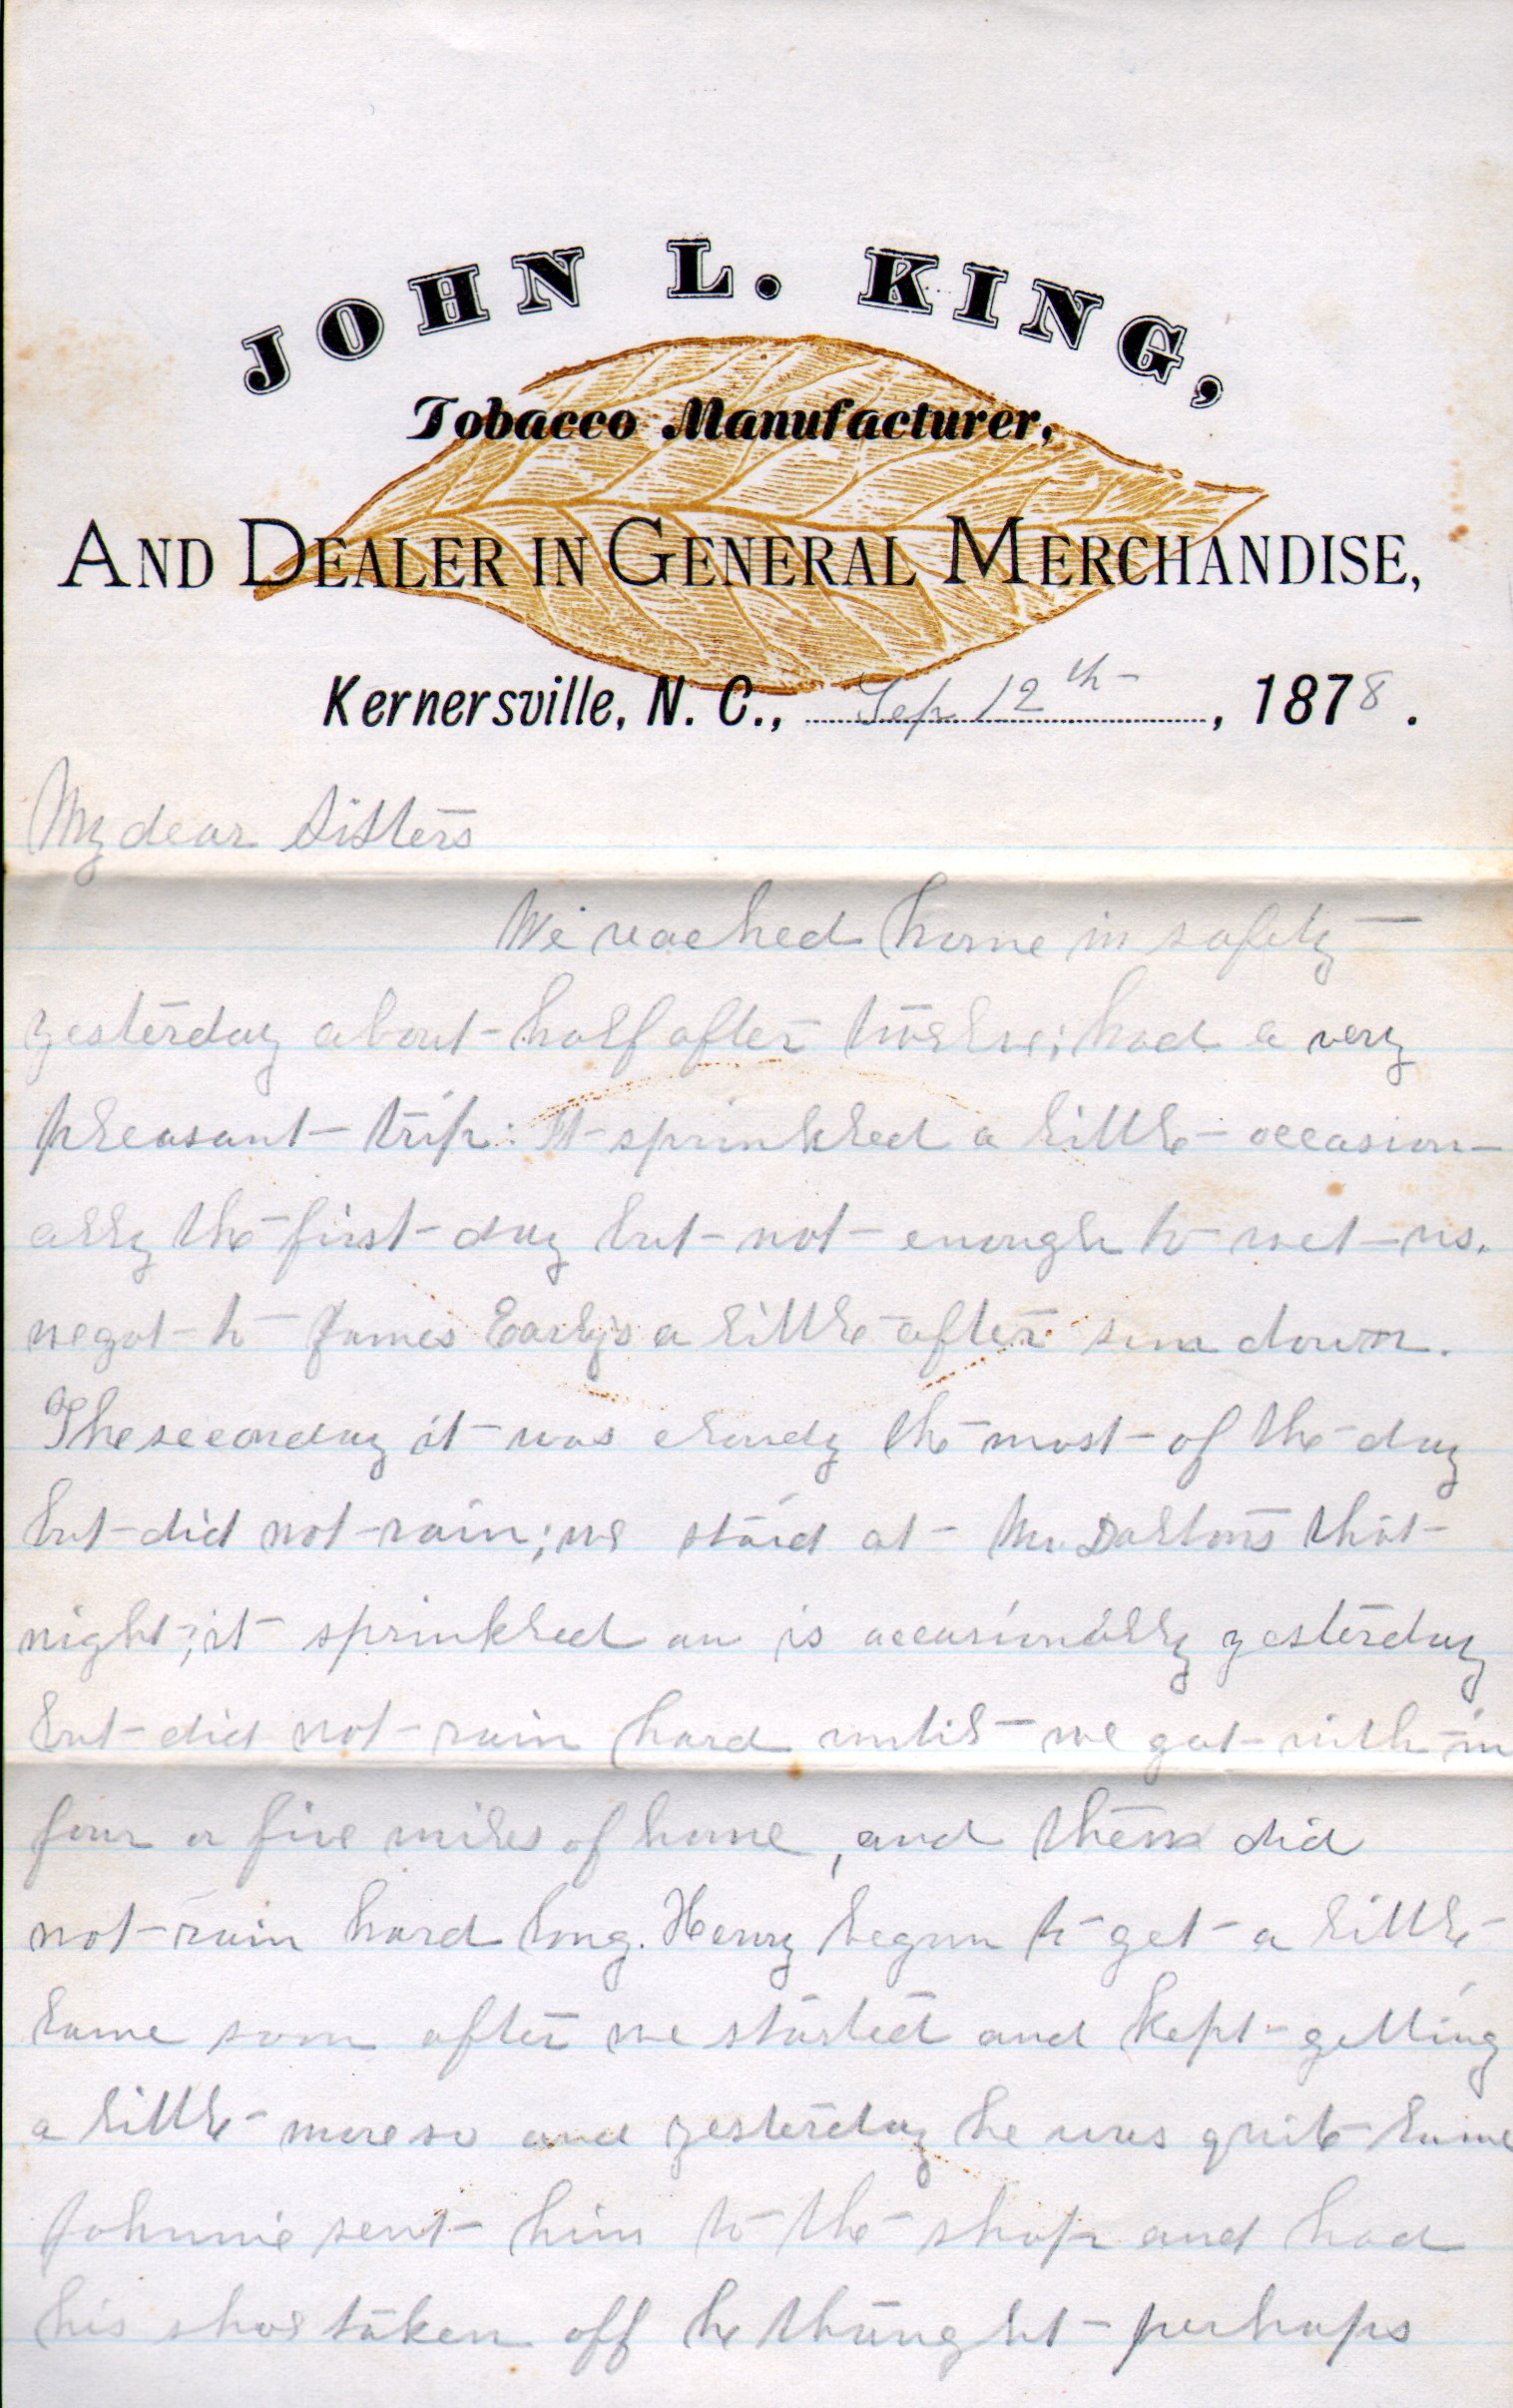 JOHN L. KING,
Tobacco Manufacturer,
AND DEALER IN GENERAL MERCHANDISE,
Kernersville, N. C., Sep 12th, 1878.
My dear Sisters
We reached home in safety
yesterday about half after twelve; had a very
pleasant trip: It sprinkled a little occasion-
ally the first day but not enough to wet us.
we got to James Early's a little after sun down.
The second day it was cloudy the most of the day
but did not rain; we staid at Mr. Daltons that
night; it sprinkled on us occasionally yesterday
but did not rain hard until we got with in
four or five miles of home, and then did
not rain hard long. Henry begun to get a little
lame soon after we started and kept getting
a little more so and yesterday he was quite lame
Johnnie sent him to the shop and had
his shoe taken off he thought perhaps